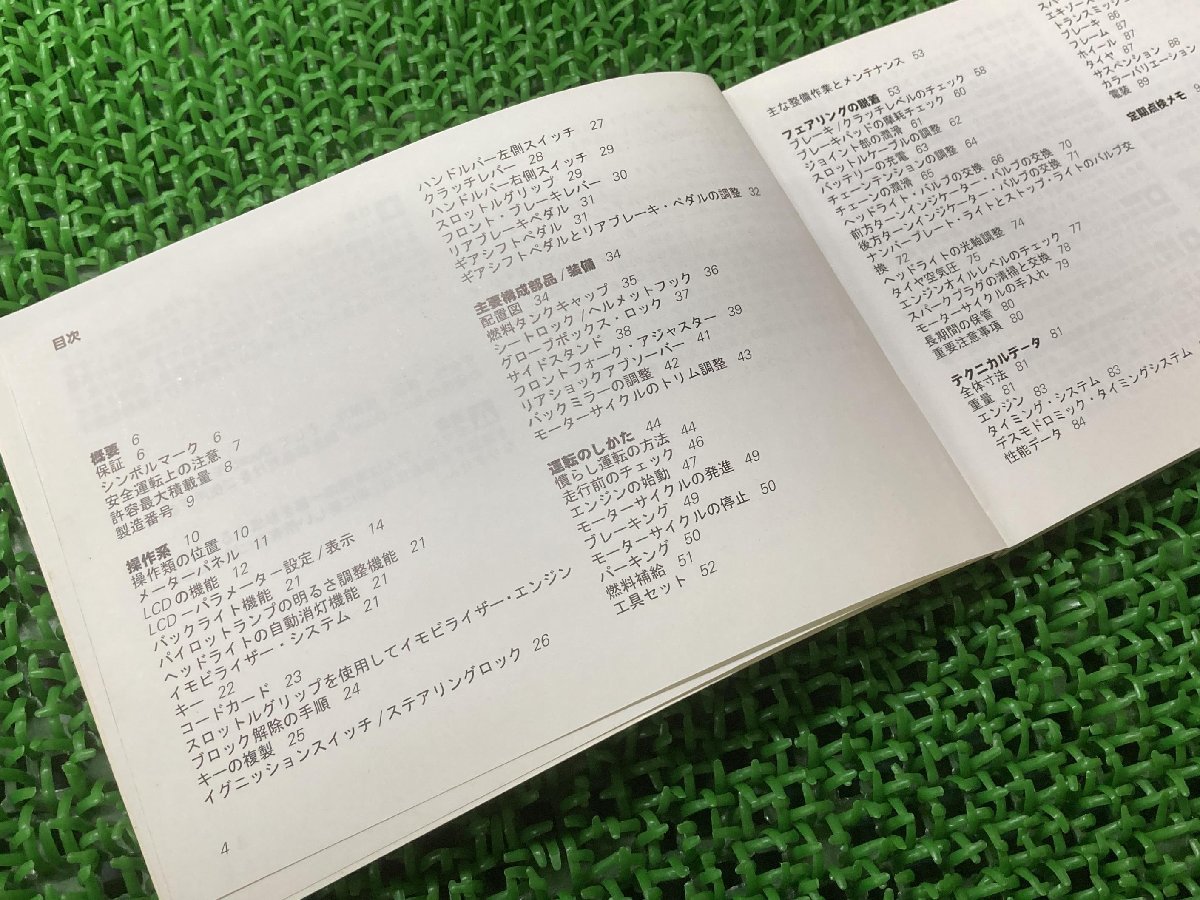 目次
概要 6
保証 6
シンボルマーク 6
安全運転上の注意 7
許容最大積載量 8
製造番号 9
操作系 10
操作類の位置 10
メーターパネル 11
LCDの機能 12
LCD－パラメーター設定/表示 14
バックライト機能 21
パイロットランプの明るさ調整機能 21
ヘッドライトの自動消灯機能 21
イモビライザー・システム 21
キー 22
コードカード 23
スロットルグリップを使用してイモビライザー・エンジン
ブロック解除の手順 24
キーの複製 25
イグニッションスイッチ/ステアリングロック 26
4
ハンドルバー左側スイッチ 27
クラッチレバー 28
ハンドルバー右側スイッチ 29
スロットルグリップ 29
フロント・ブレーキレバー 30
リアブレーキペダル 31
ギアシフトペダル 31
ギアシフトペダルとリアブレーキ・ペダルの調整 32
主要構成部品/装備 34
配置図 34
燃料タンクキャップ 35
シートロック/ヘルメットフック 36
グローブボックス・ロック 37
サイドスタンド 38
フロントフォーク・アジャスター 39
リアショックアブソーバー 41
バックミラーの調整 42
モーターサイクルのトリム調整 43
運転のしかた 44
慣らし運転の方法 44
走行前のチェック 46
エンジンの始動 47
モーターサイクルの発進 49
ブレーキング 49
モーターサイクルの停止 50
パーキング 50
燃料補給 51
工具セット 52
主な整備作業とメンテナンス 53
フェアリングの脱着 53
ブレーキ/クラッチレベルのチェック 58
ブレーキパッドの摩耗チェック 60
ジョイント部の潤滑 61
スロットルケーブルの調整 62
バッテリーの充電 63
チェーンテンションの調整 64
チェーンの潤滑 65
ヘッドライト・バルブの交換 66
前方ターンインジケーター・バルブの交換 70
後方ターンインジケーター・バルブの交換 71
ナンバープレート・ライトとストップ・ライトのバルブ交
換 72
ヘッドライトの光軸調整 74
タイヤ空気圧 75
エンジンオイルレベルのチェック 77
スパークプラグの清掃と交換 78
モーターサイクルの手入れ 79
長期間の保管 80
重要注意事項 80
テクニカルデータ 81
全体寸法 81
重量 81
エンジン 83
タイミング・システム 83
デスモドロミック・タイミングシステム
性能データ 84
トランスミッション
ブレーキ 86
フレーム 87
ホイール 87
タイヤ 87
サスペンション 88
カラーバリエーション
電装 89
定期点検メモ